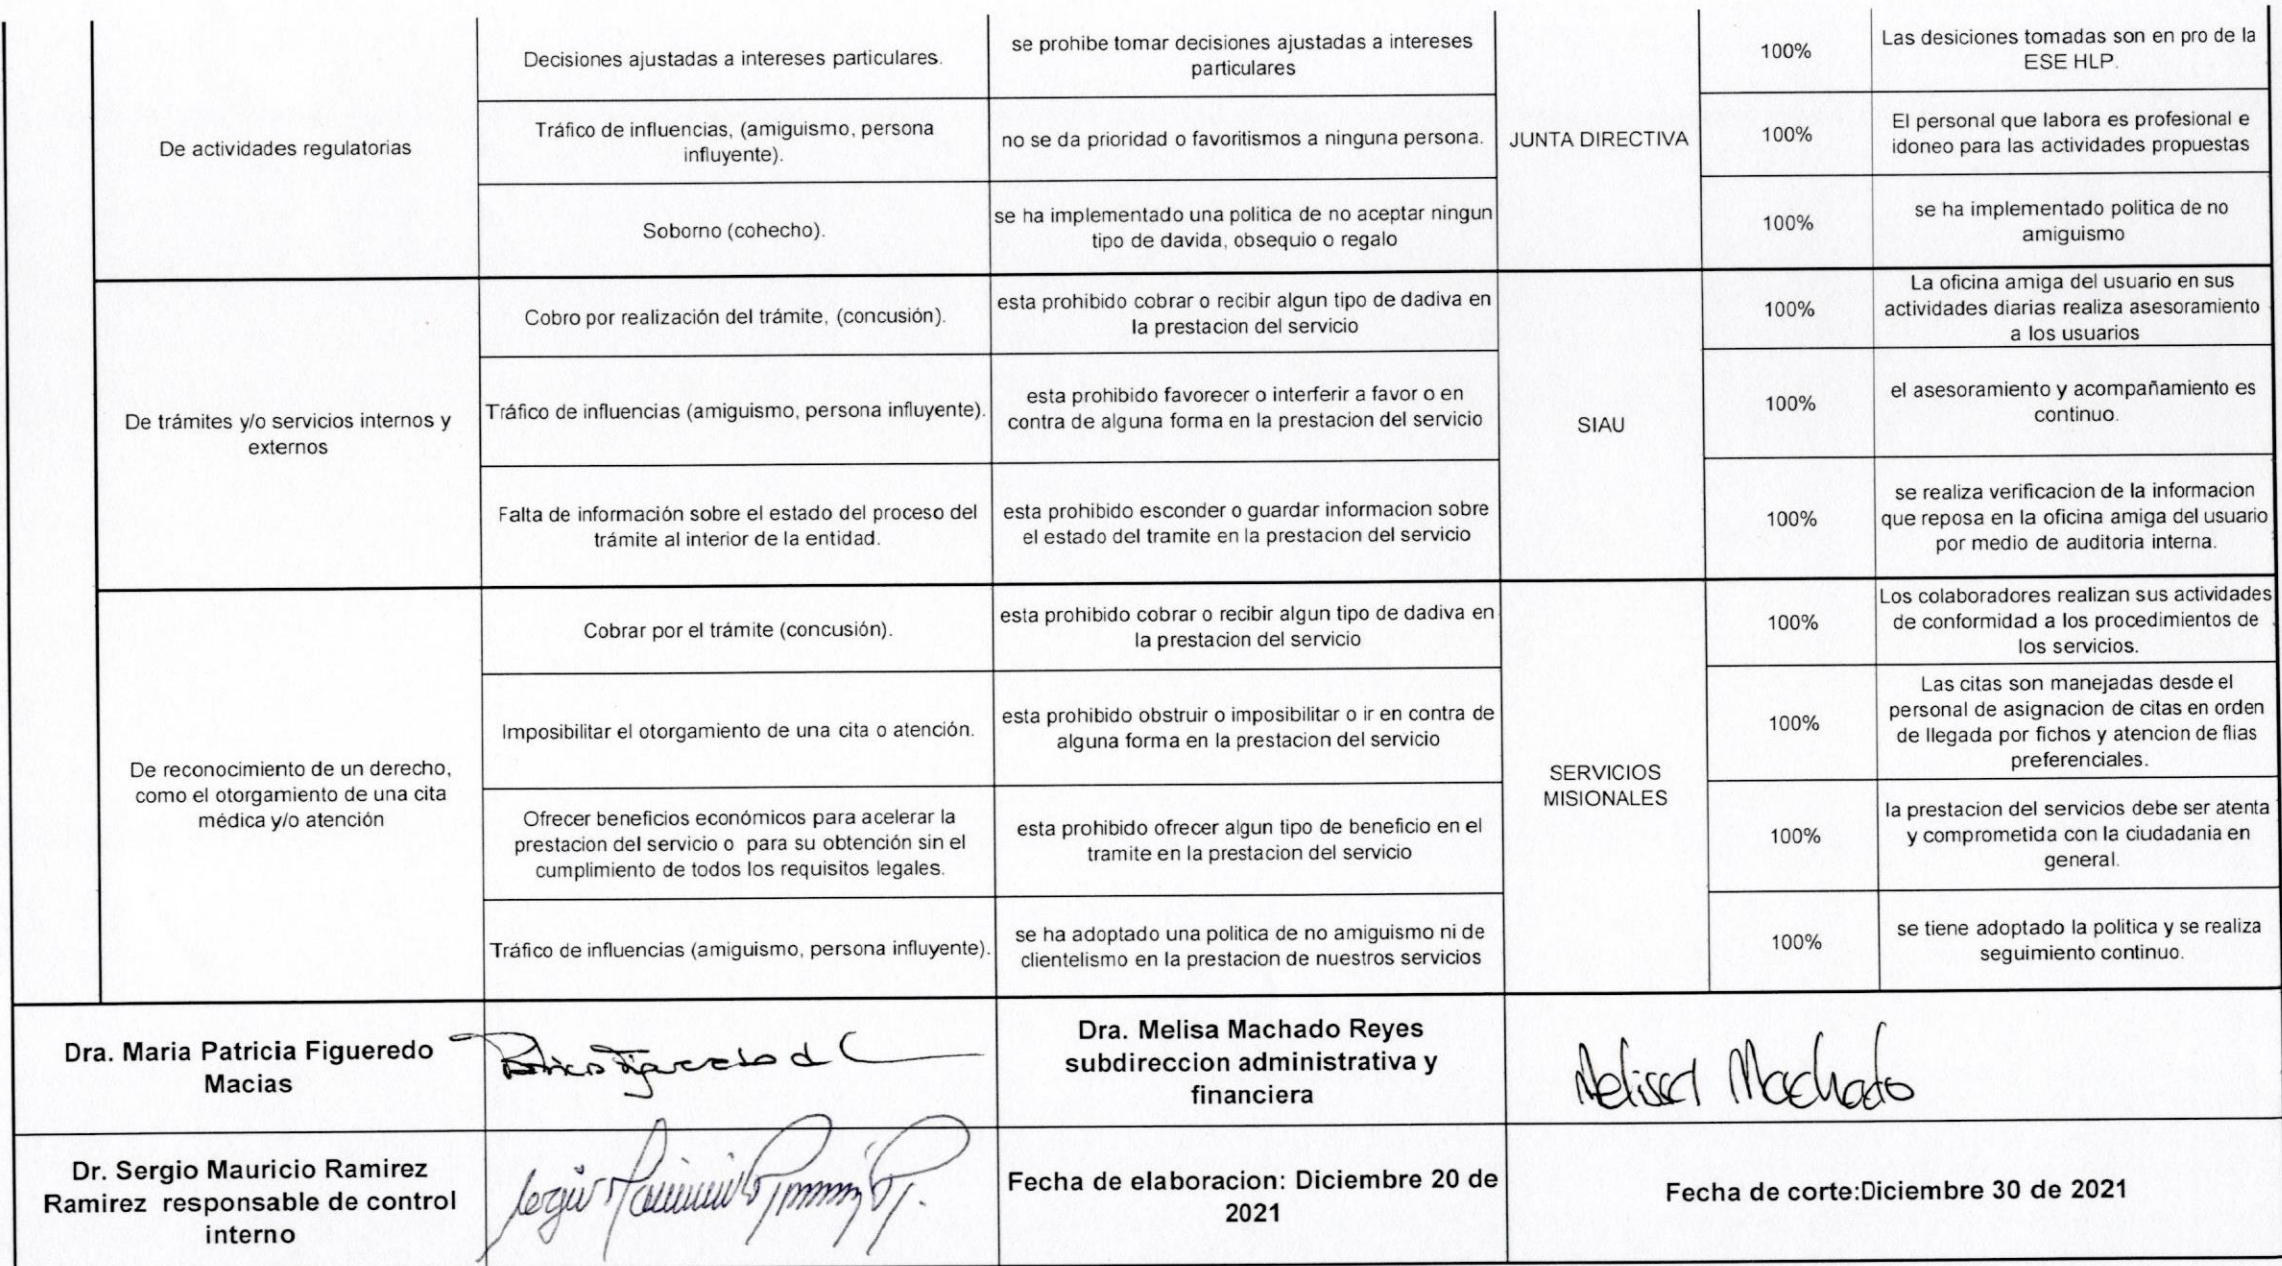 De actividades regulatorias
Decisiones ajustadas a intereses particulares.
se prohibe tomar decisiones ajustadas a intereses
particulares
JUNTA DIRECTIVA
100%
Las desiciones tomadas son en pro de la
ESE HLP.
Tráfico de influencias, (amiguismo, persona
influyente).
no se da prioridad o favoritismos a ninguna persona.
100%
El personal que labora es profesional e
idoneo para las actividades propuestas
Soborno (cohecho).
se ha implementado una politica de no aceptar ningun
tipo de davida, obsequio o regalo
100%
se ha implementado politica de no
amiguismo
De trámites y/o servicios internos y
externos
Cobro por realización del trámite, (concusión).
esta prohibido cobrar o recibir algun tipo de dadiva en
la prestacion del servicio
SIAU
100%
La oficina amiga del usuario en sus
actividades diarias realiza asesoramiento
a los usuarios
Tráfico de influencias (amiguismo, persona influyente).
esta prohibido favorecer o interferir a favor o en
contra de alguna forma en la prestacion del servicio
100%
el asesoramiento y acompañamiento es
continuo.
Falta de información sobre el estado del proceso del
trámite al interior de la entidad.
esta prohibido esconder o guardar informacion sobre
el estado del tramite en la prestacion del servicio
100%
se realiza verificacion de la informacion
que reposa en la oficina amiga del usuario
por medio de auditoria interna.
De reconocimiento de un derecho,
como el otorgamiento de una cita
médica y/o atención
Cobrar por el trámite (concusión).
esta prohibido cobrar o recibir algun tipo de dadiva en
la prestacion del servicio
SERVICIOS
MISIONALES
100%
Los colaboradores realizan sus actividades
de conformidad a los procedimientos de
los servicios.
Imposibilitar el otorgamiento de una cita o atención.
esta prohibido obstruir o imposibilitar o ir en contra de
alguna forma en la prestacion del servicio
100%
Las citas son manejadas desde el
personal de asignacion de citas en orden
de llegada por fichos y atencion de flias
preferenciales.
Ofrecer beneficios económicos para acelerar la
prestacion del servicio o para su obtención sin el
cumplimiento de todos los requisitos legales.
esta prohibido ofrecer algun tipo de beneficio en el
tramite en la prestacion del servicio
100%
la prestacion del servicios debe ser atenta
y comprometida con la ciudadania en
general.
Tráfico de influencias (amiguismo, persona influyente).
se ha adoptado una politica de no amiguismo ni de
clientelismo en la prestacion de nuestros servicios
100%
se tiene adoptado la politica y se realiza
seguimiento continuo.
Dra. Maria Patricia Figueredo
Macias
Dra. Melisa Machado Reyes
subdireccion administrativa y
financiera
Melissa Machado
Dr. Sergio Mauricio Ramirez
Ramirez responsable de control
interno
Fecha de elaboracion: Diciembre 20 de
2021
Fecha de corte:Diciembre 30 de 2021